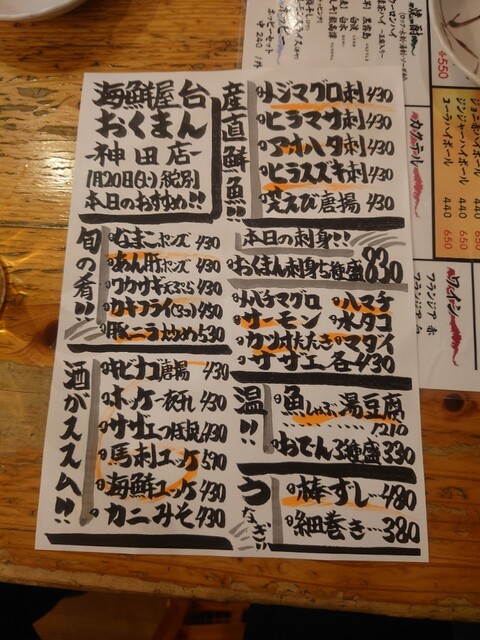 海鮮屋台
おくまん
-神田店-
1月20日(土)税別
本日のおすすめ!!
産直鮮魚!!
メジマグロ刺430
ヒラマサ刺430
アオハタ刺430
ヒラスズキ刺430
芝えび唐揚430
旬の肴!!
なまこポン酢430
あん肝ポン酢430
ワカサギ天ぷら430
カキフライ(3つ)430
豚ニラ炒め530
本日の刺身!!
おくまん刺身5種盛830
バチマグロ
ハマチ
サーモン
水タコ
カツオたたき
マダイ
サザエ 各430
酒がススム!!
キビナゴ唐揚430
ホッケ一夜干し430
サザエつぼ焼430
馬刺ユッケ590
海鮮ユッケ430
カニみそ430
温!!
魚しゃぶ湯豆腐
1210
おでん3種盛330
うなぎ!!
棒ずし…480
細巻き…380
焼酎
ウーロンハイ
6550
白波
白水
ホッピーセット
中 240
カクテル
ジンジャーハイボール
コーラハイボール
440
440
440
650
650
ワイン
フランジア 赤
フランジア 白